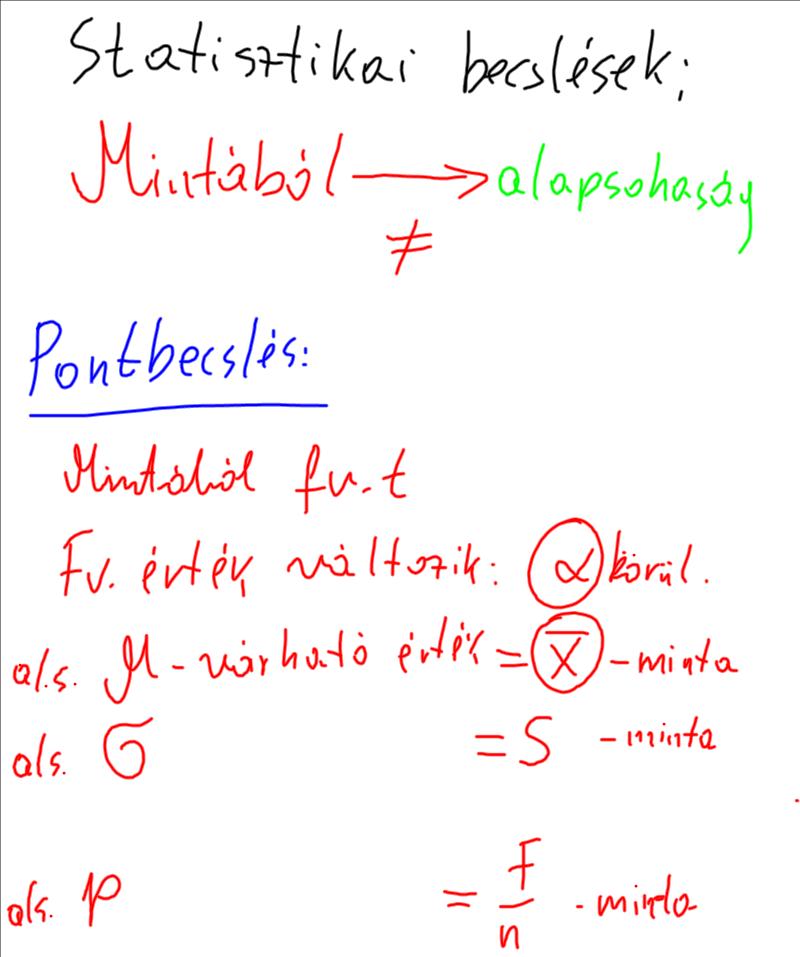 Statisztikai becslések;
Mintából → alapsohaság
≠
Pontbecslés:
Mintából fv.t
Fv. érték változik: α körül.
al.s. M - várható érték = X̅ - minta
als. σ = S - minta
als. p = F/n - minta